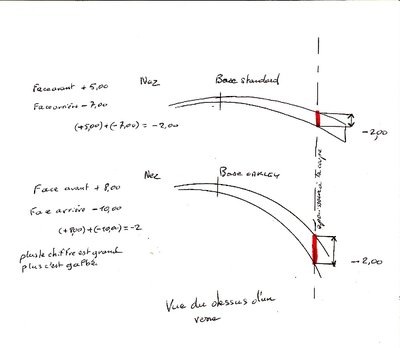 Face avant + 5,00
Face arrière - 7,00
(+5,00) + (-7,00) = -2,00
Nez
Base standard
-2,00
épaisseur à la coupe
Face avant + 8,00
Face arrière - 10,00
(+8,00) + (-10,00) = -2
plus le chiffre est grand
plus c'est galbé.
Nez
Base OAKLEY
-2,00
Vue du dessus d'un
verre